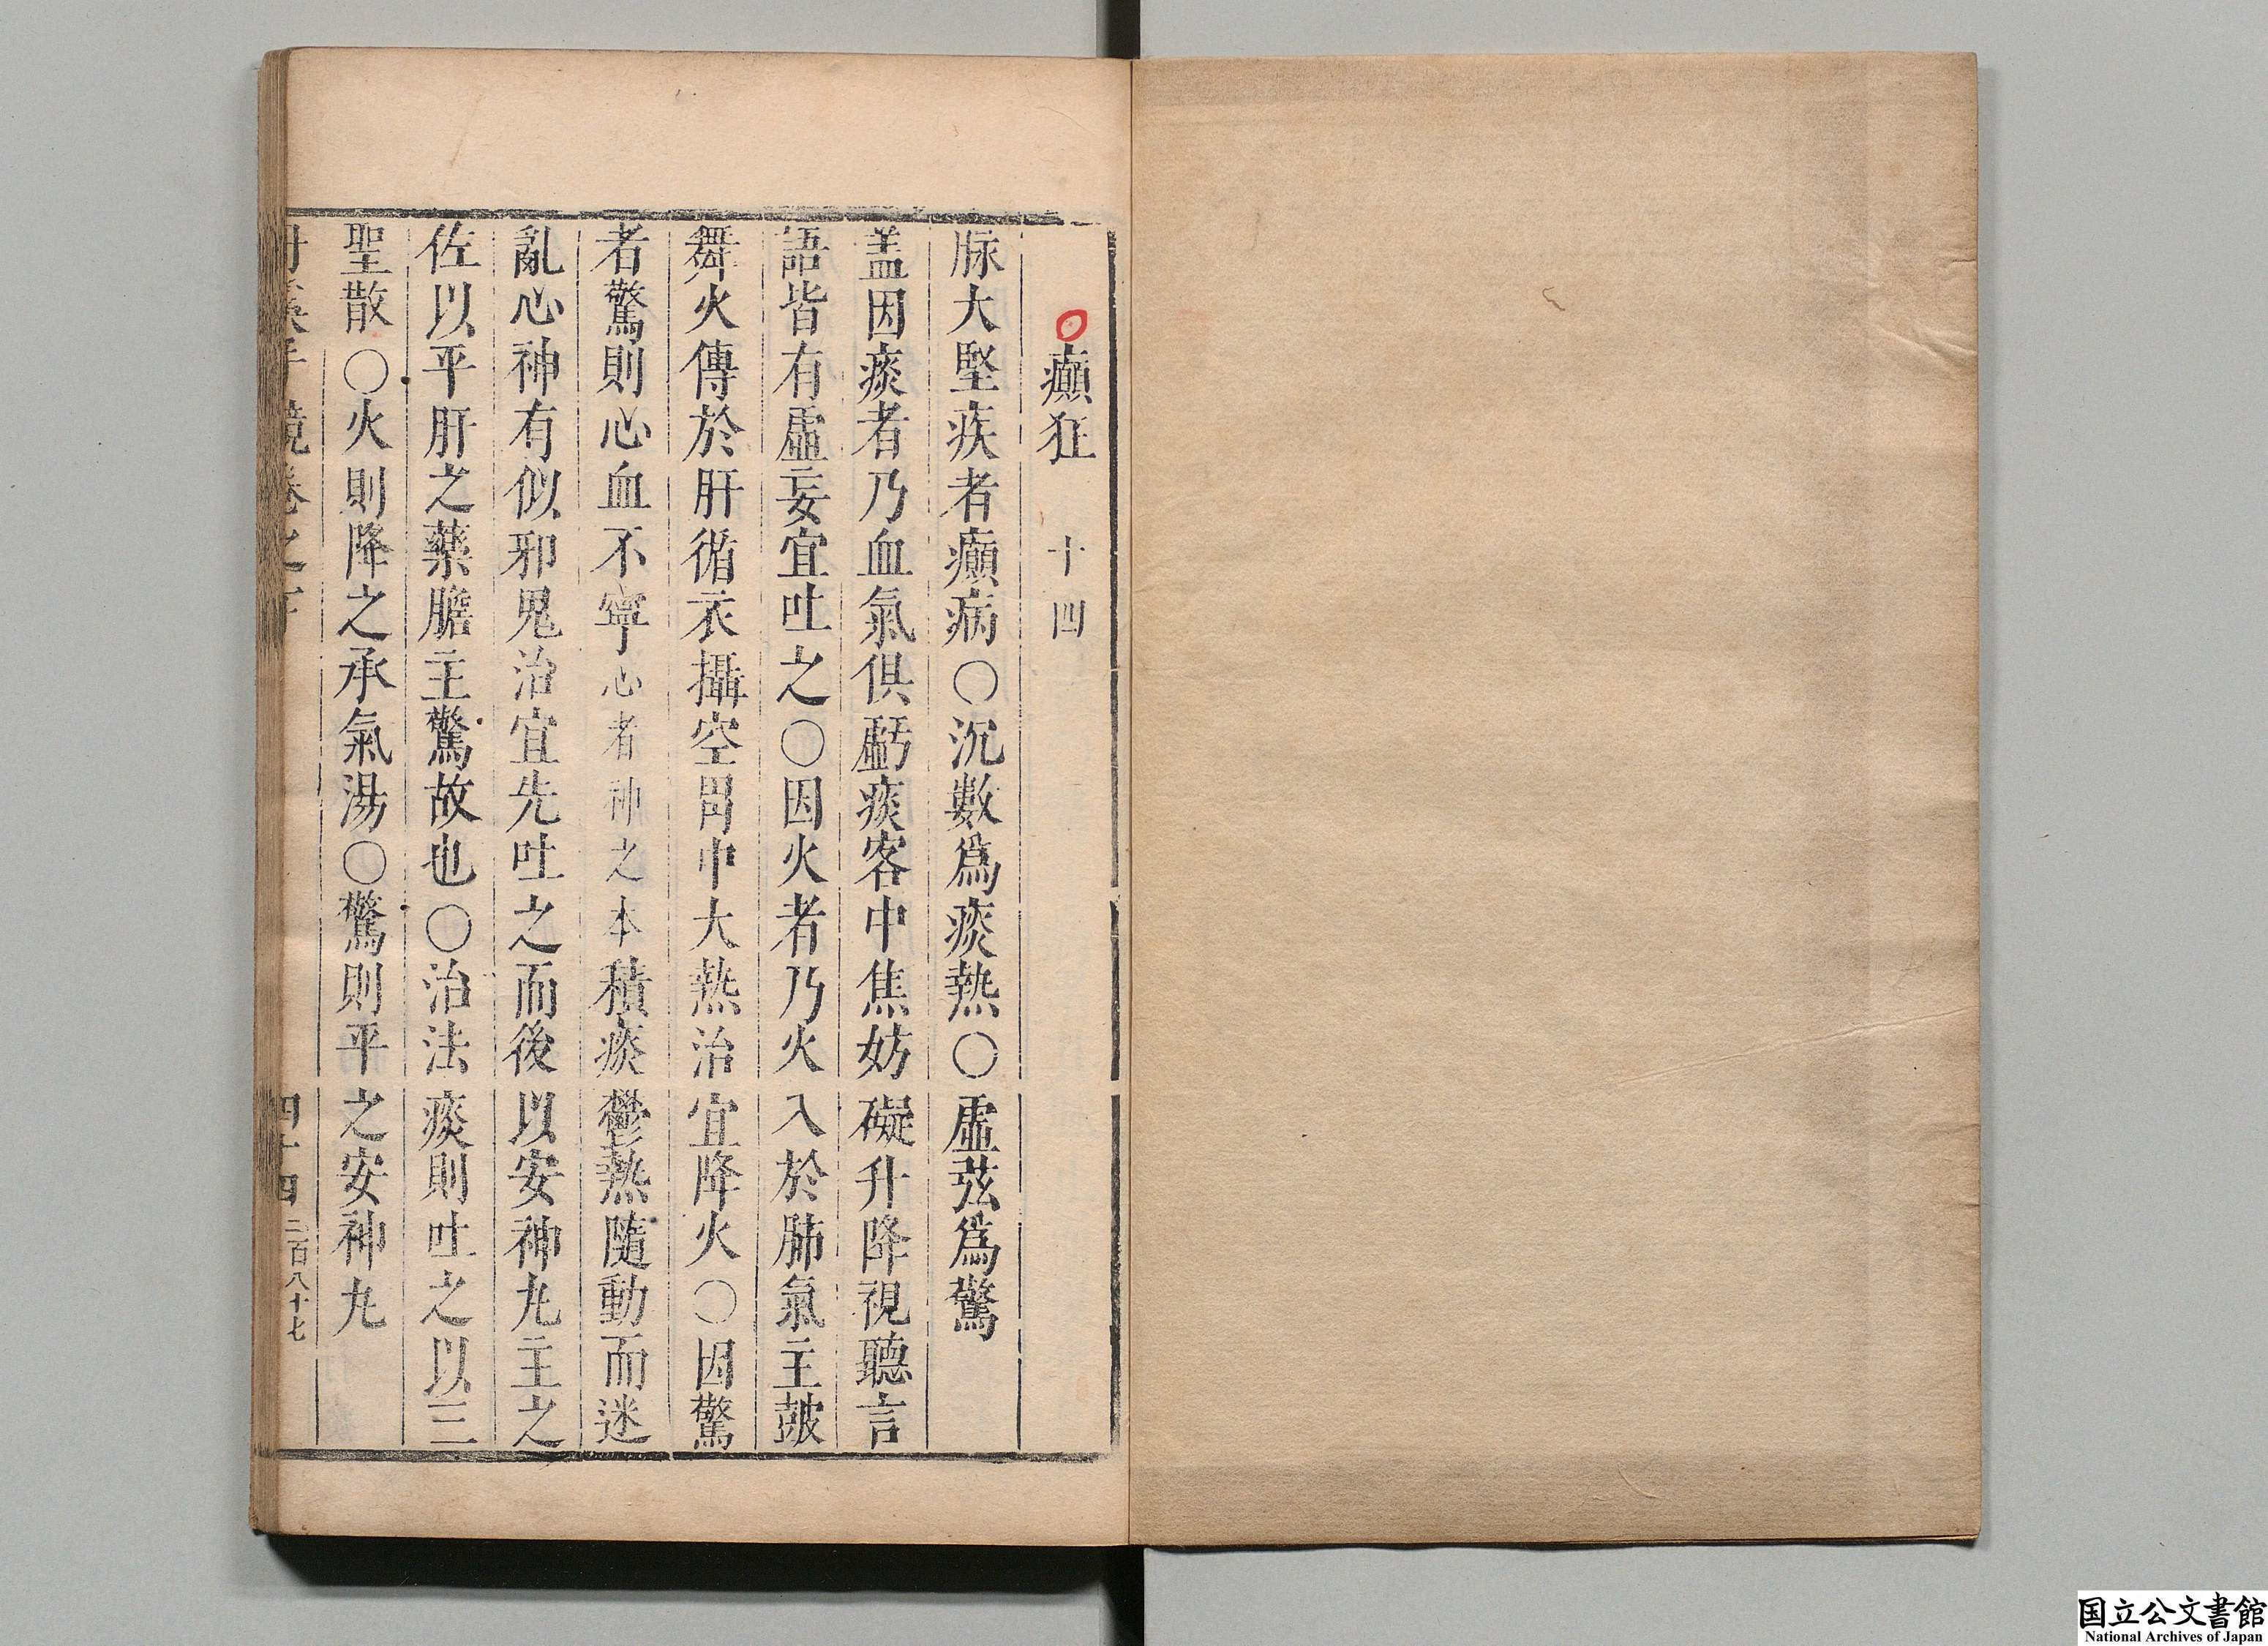 癲狂 十四
脉大堅疾者癲病〇沉數爲痰熱〇虛弦爲驚
盖因痰者乃血氣俱虧痰客中焦妨礙升降視聽言
語皆有虛妄宜吐之〇因火者乃火入於肺氣主皷
舞火傳於肝循衣攝空胃中大熱治宜降火〇因驚
者驚則心血不寧心者神之本積痰鬱熱隨動而迷
亂心神有似邪鬼治宜先吐之而後以安神丸主之
佐以平肝之藥膽主驚故也〇治法痰則吐之以三
聖散〇火則降之承氣湯〇驚則平之安神丸
鏡卷之
四十四 二百八十七
国立公文書館
National Archives of Japan